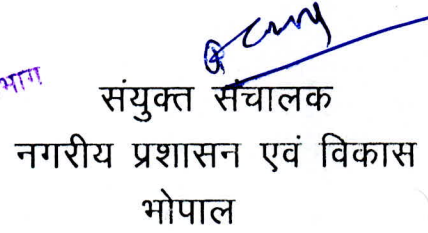 भाग
संयुक्त संचालक
नगरीय प्रशासन एवं विकास
भोपाल